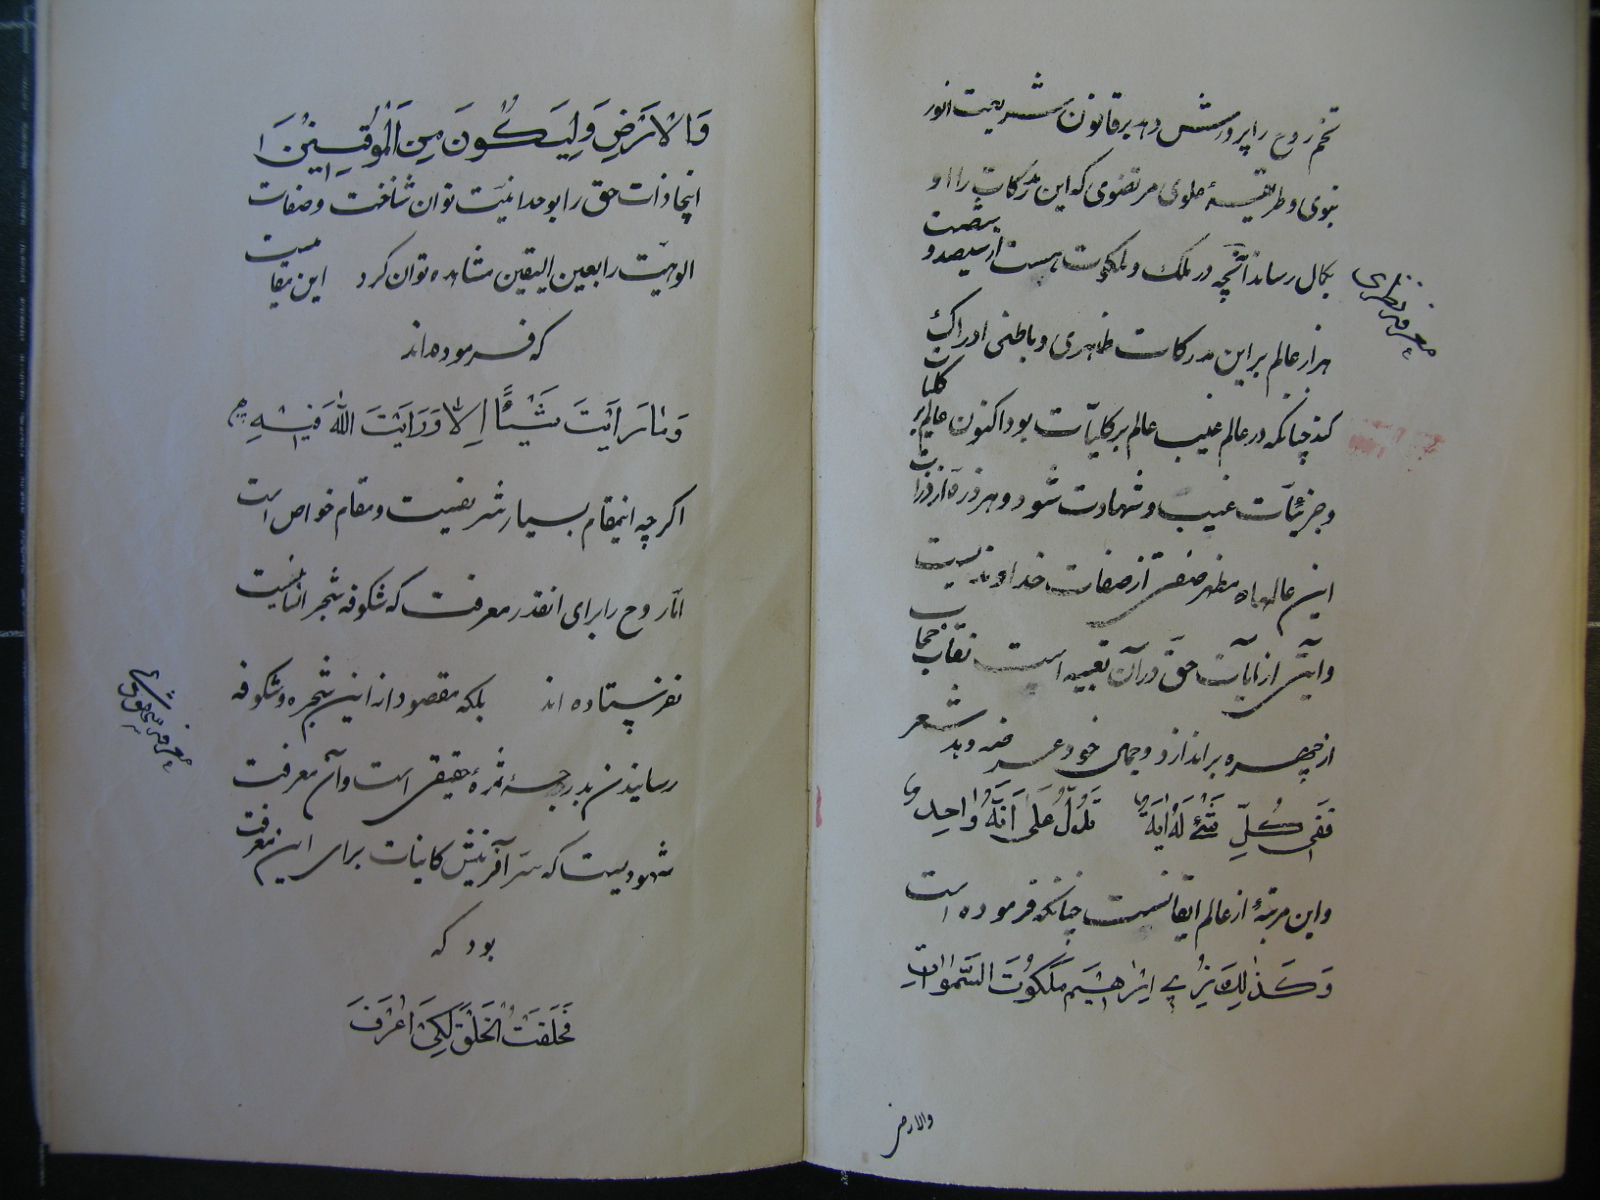 تخم روح را پرورش دهد بر قانون شریعت انور
نبوی و طریقهٔ علوی مرتضوی که این مدرکات را او
بکمال رساند آنچه در ملک و ملکوت هست از سیصد و شصت
هزار عالم بر این مدرکات ظاهری و باطنی ادراک
کند چنانکه در عالم غیب عالم بر کلیّات بود اکنون عالم بر کلیات
و جزئیّات غیب و شهادت شود و هر ذرّه از ذرات
این عالمها مظهر صفتی از صفات خداوندیست
و آیتی از آیات حقّ در آن تعبیه است نقاب حجاب
از چهره براندازد و جمال خود عرضه دهد شعر
فَفی کُلِّ شَیْءٍ لَهُ آیَةٌ تَدُلُّ عَلی اَنَّهُ واحِد
و این مرتبهٔ از عالم ایقانست چنانکه فرموده است
وَ کَذلِکَ نُرِی اِبْراهیمَ مَلَکُوتَ السَّمواتِ
والارض
معرفت نظری
وَالْاَرْضِ وَلِیَکُونَ مِنَ الْمُوقِنینَ
اینجا ذات حق را بوحدانیّت توان شناخت و صفات
الوهیّت را بعین الیقین مشاهده توان کرد این مقامیست
که فرموده‌اند
وَ ما رَاَیْتَ شَیْئاً اِلّا وَ رَایْتَ اللّهَ فیهِ
اگرچه اینمقام بسیار شریفست و مقام خواص است
امّا روح را برای اینقدر معرفت که شکوفه شجر انسانیست
نفرستاده اند بلکه مقصود از این شجره و شکوفه
رسانیدن بدرجهٔ ثمرهٔ حقیقی است و آن معرفت
شهودیست که سرّ آفرینش کاینات برای این معرفت
بود که
فَخَلَقْتُ الْخَلْقَ لِکَیْ اُعْرَفَ
معرفت شهودی